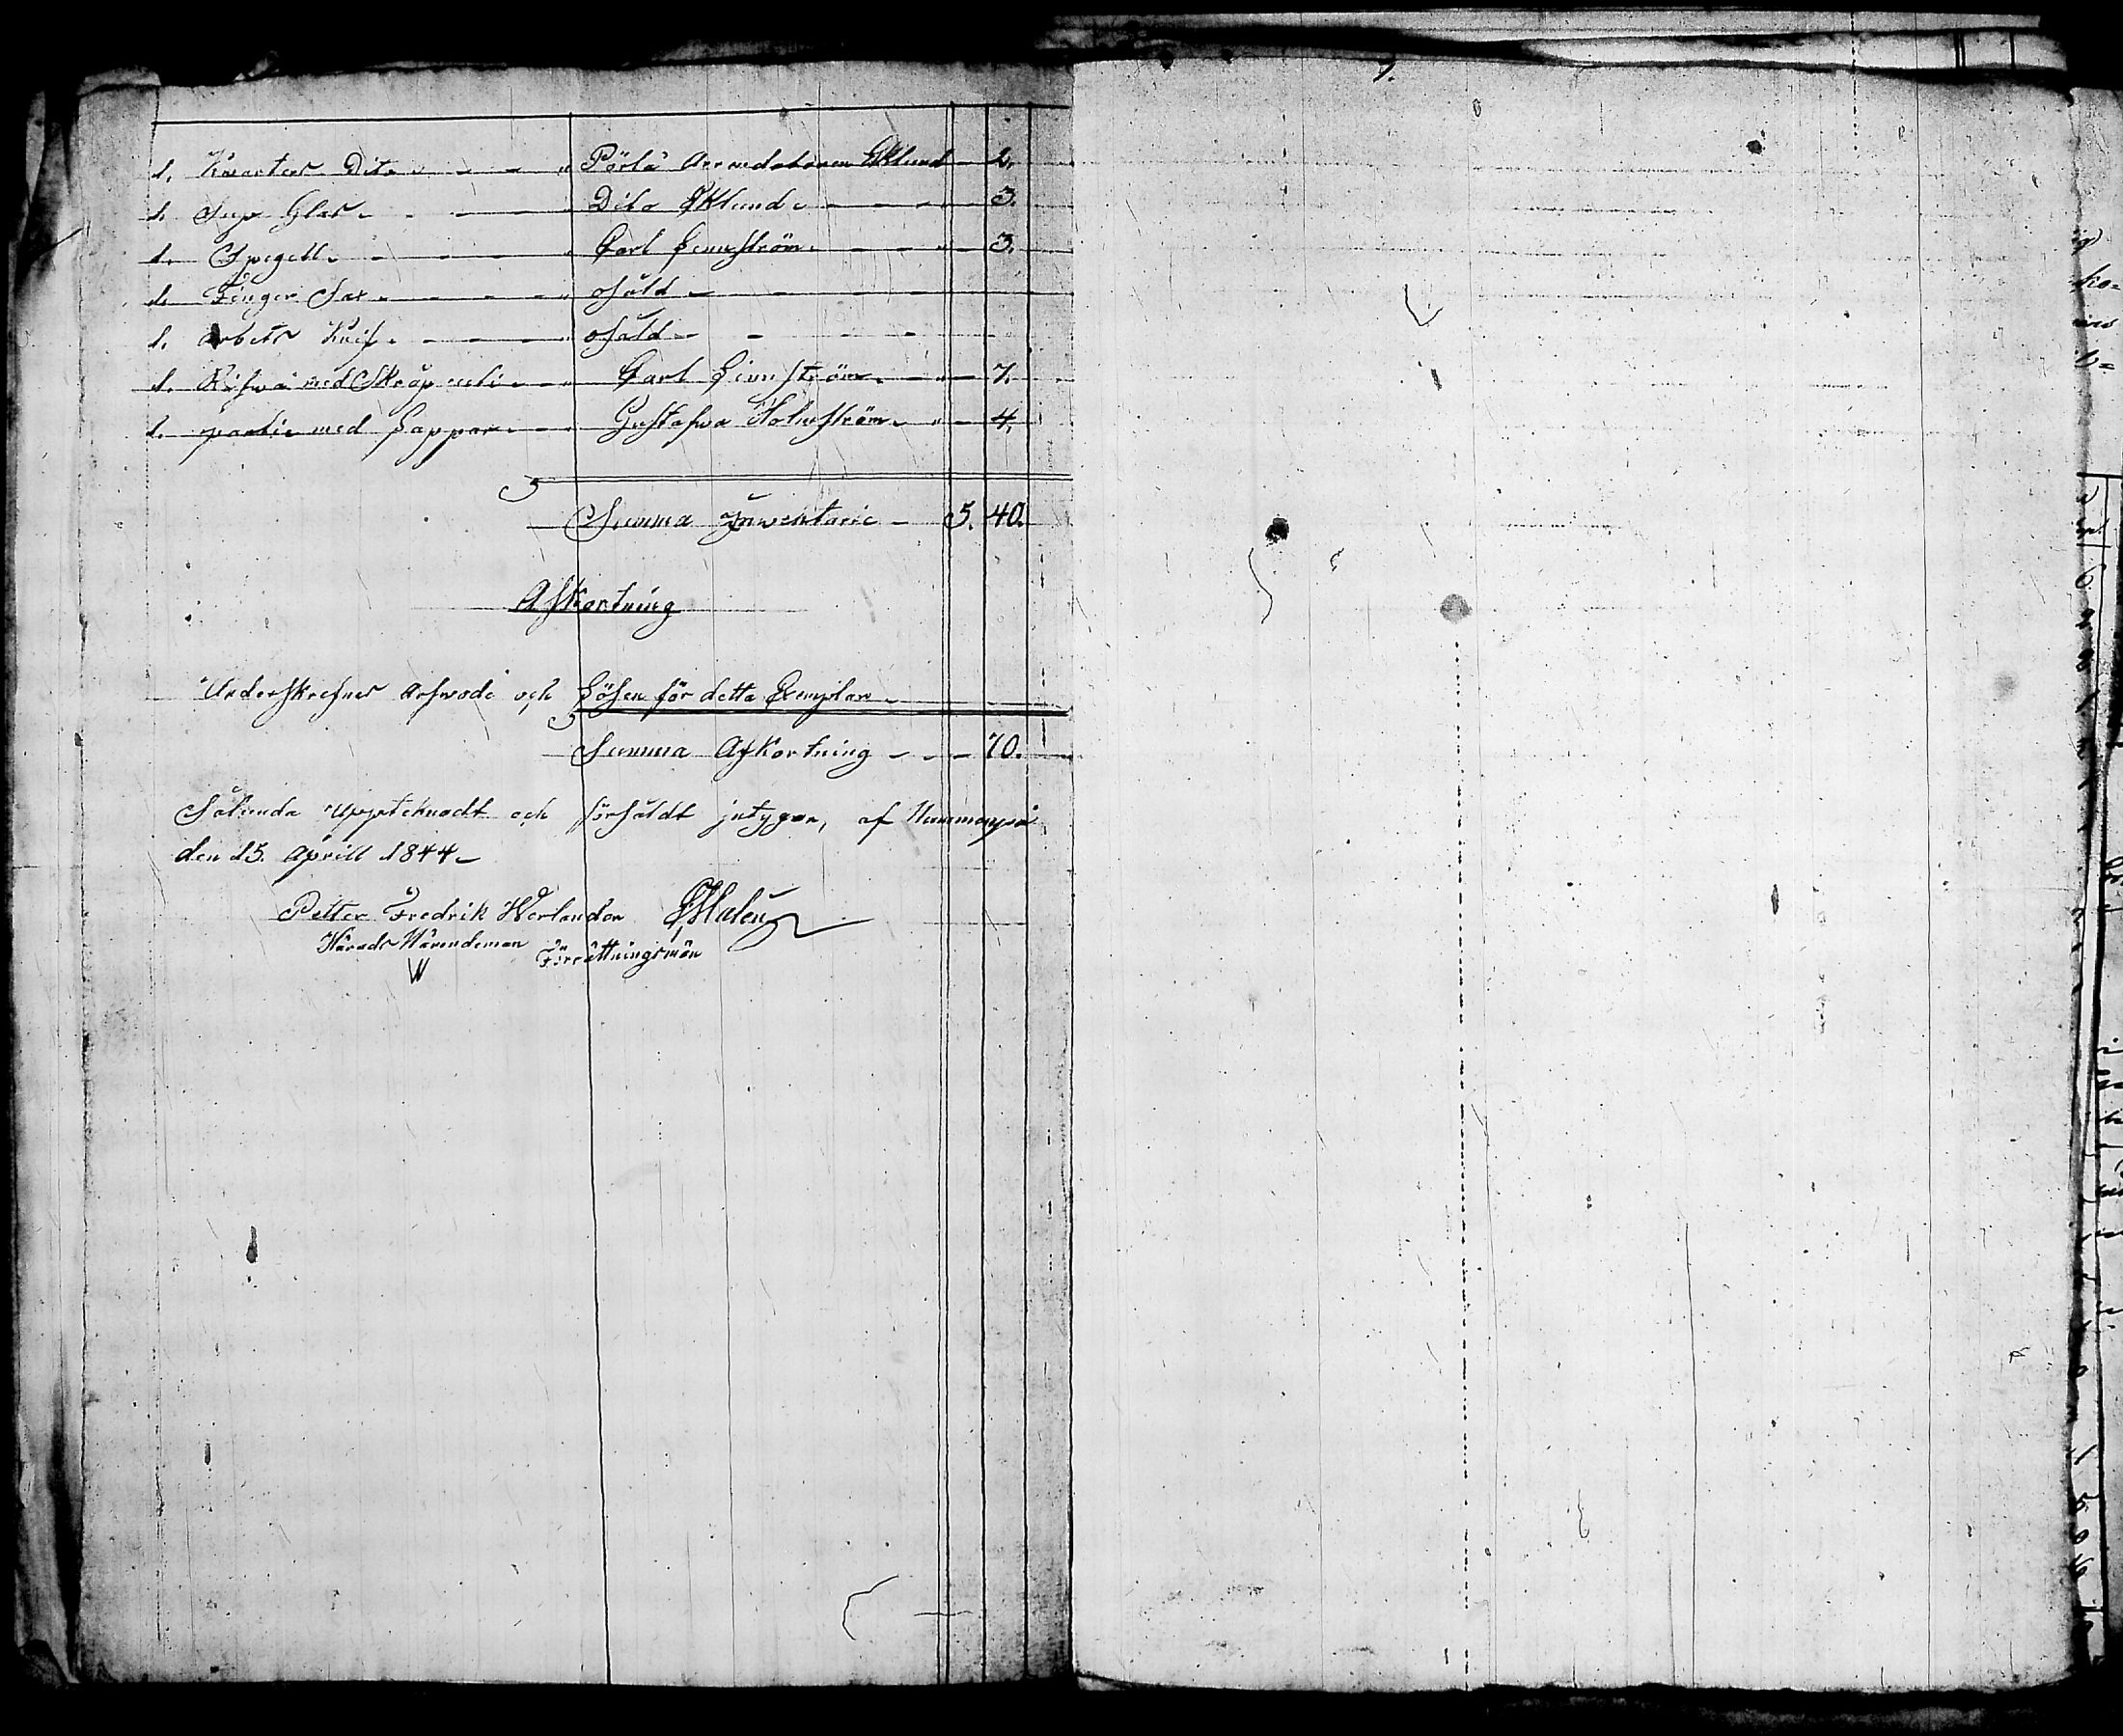 1. Kvarters Dito Pörlä Arrendatoren Eklund 2.
1. Sup Glas Dito Eklund 3.
1. Spegell Carl Lennström 3.
1. Finger Sax osåld
1. Arbets Knif osåld
1. med Skräp uti Carl Lennström 7.
1. parti med Lappar Gustafva Holmström 4.
Summa Inventarie 5. 40.
Afkortning
Underskrefnes Arfvode och Lösen för detta Exemplar
Summa Afkortning 70.
Sålunda upptecknadt och försåldt intygar, af Nummenpä
den 15. Aprill 1844
Petter Fredrik Werlander Malen
Härads Närendeman Förrättningsmän